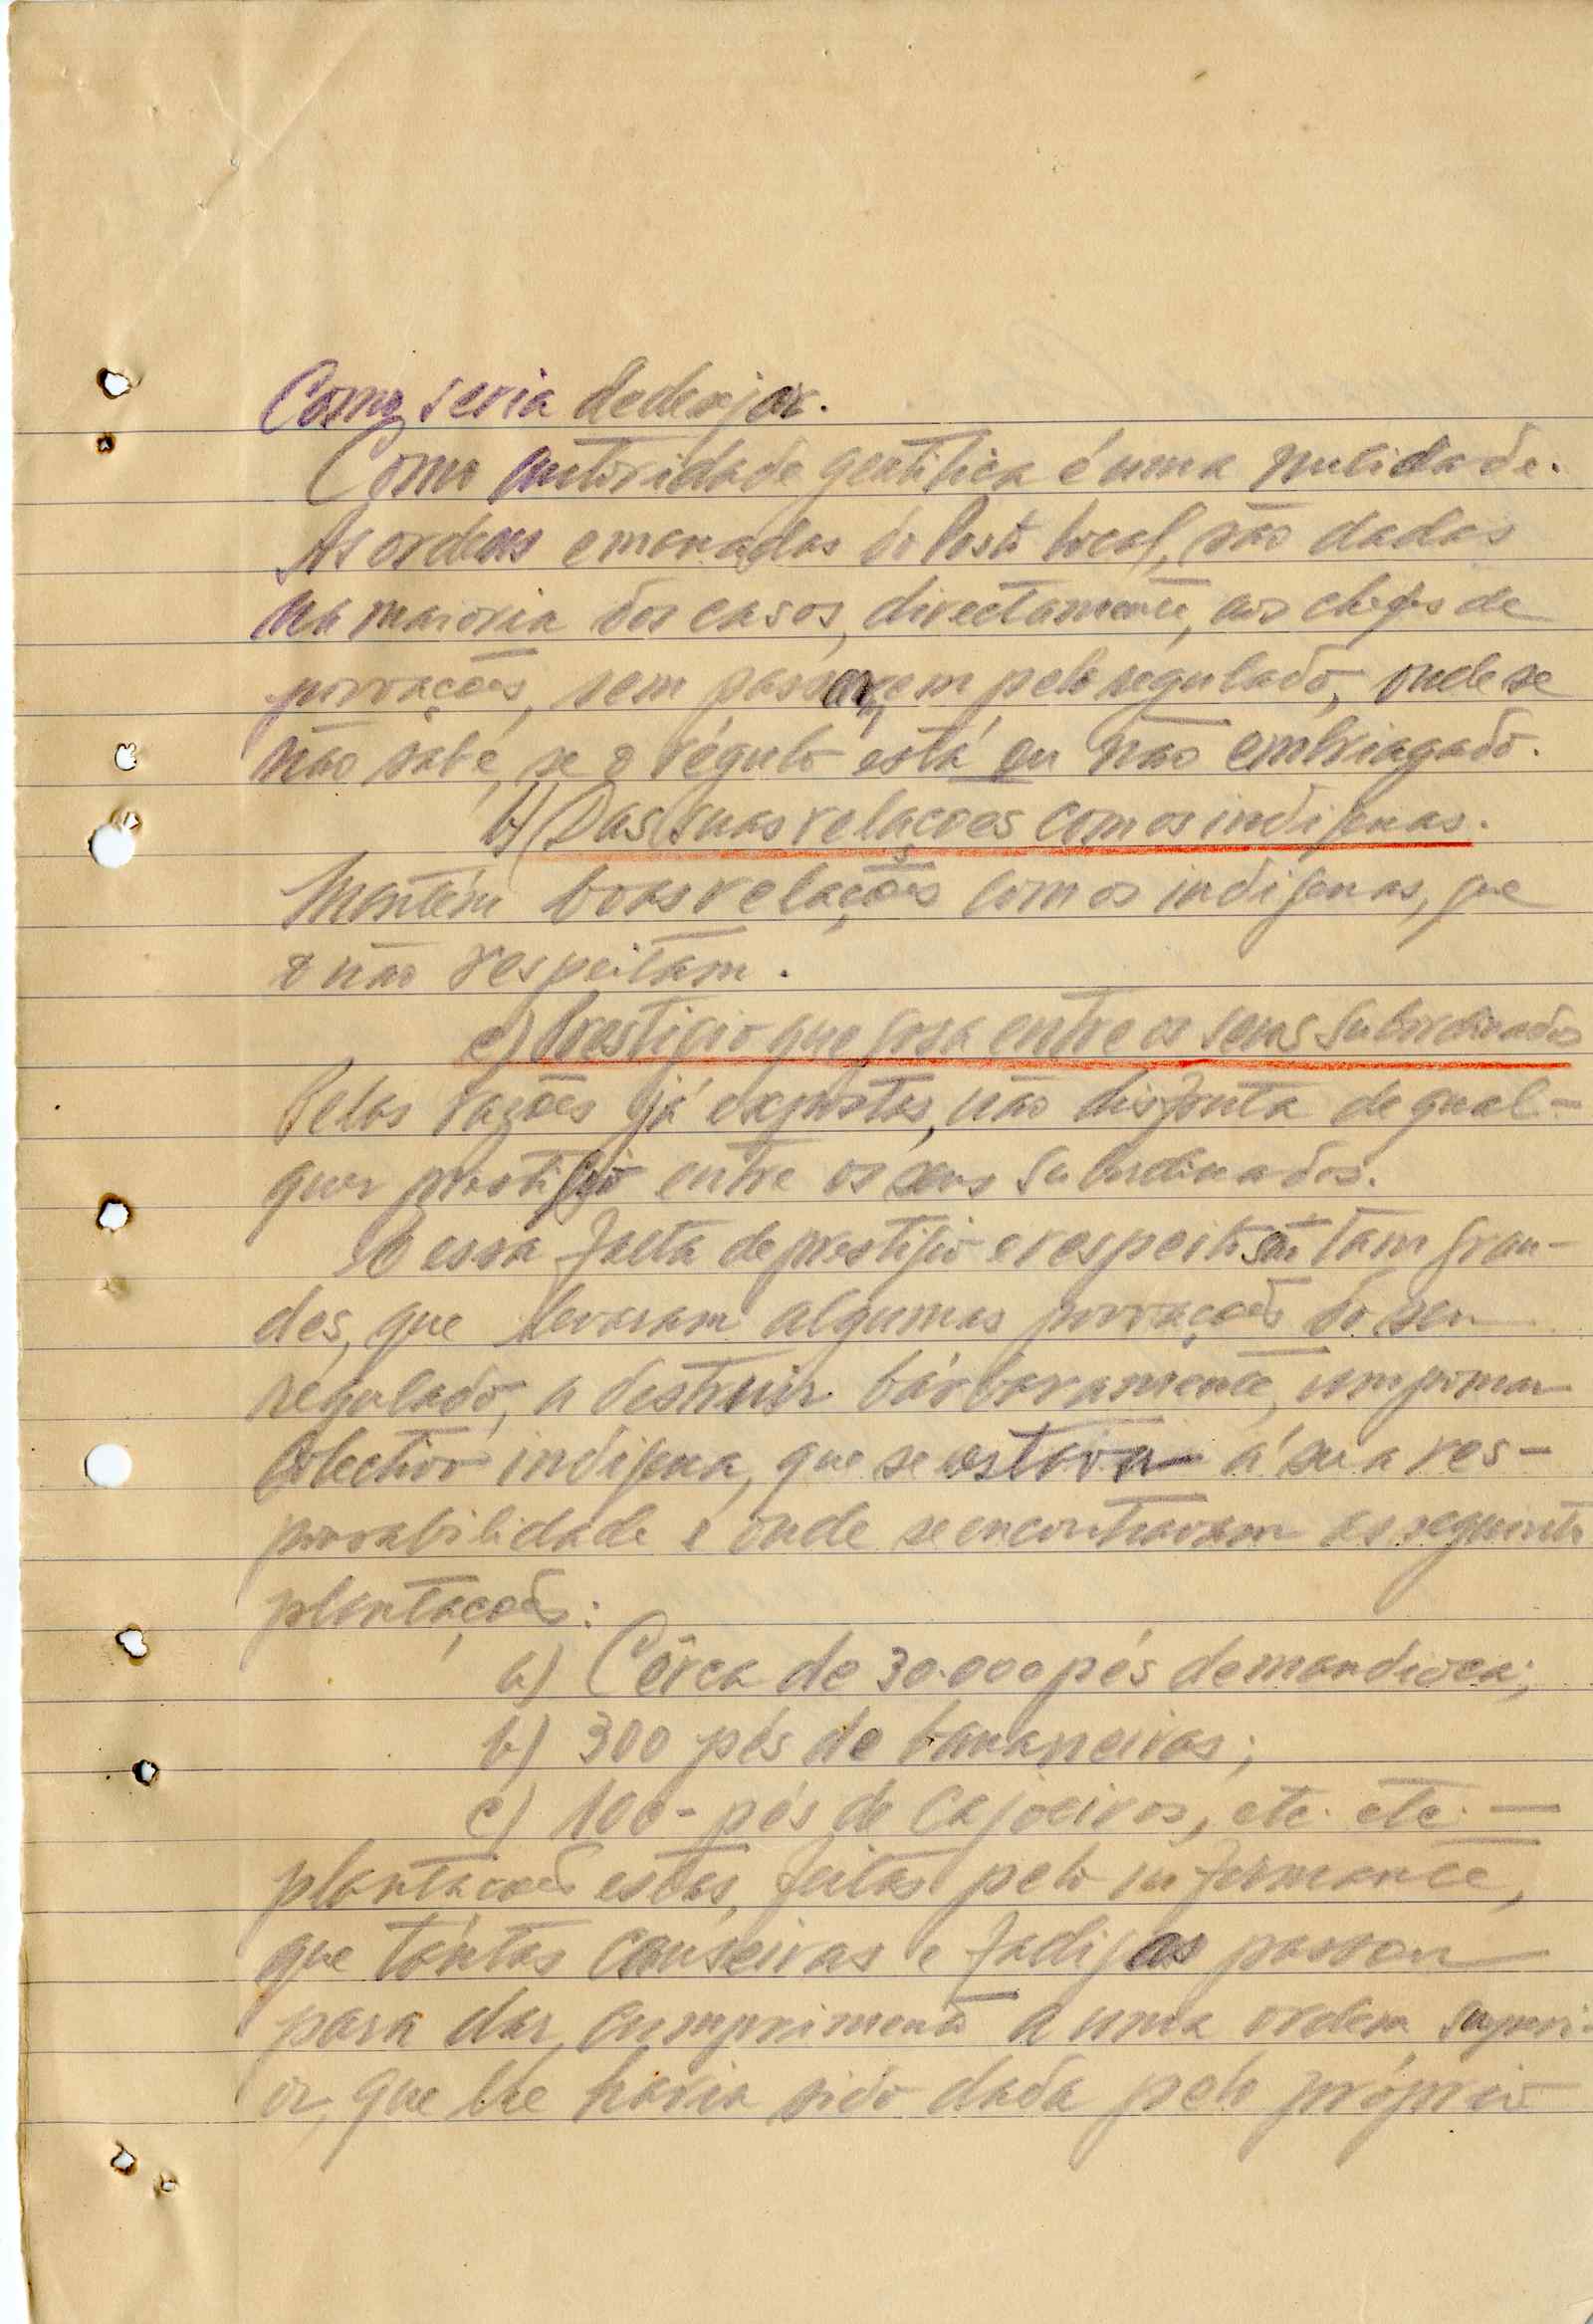 Como seria dedesejar.
Como autoridade gentilica é uma nulidade.
As ordens emanadas do Posto local, são dadas
na maioria dos casos, directamente, aos chefes de
povoações, sem passarem pelo regulado, onde se
não sabe, se o régulo está ou não embriagado.
b) Das suas relações com os indigenas.
Mantém boas relações com os indigenas, que
o não respeitam.
c) Prestigio que gosa entre os seus subordinados
Pelas razões já expostas, não disfruta de qual-
quer prestigio entre os seus subordinados.
E essa falta de prestigio e respeito são tam gran-
des, que levaram algumas povoações do seu
regulado, a destruir bárbaramente, um pomar
Colectivo indigena, que se estava á sua res-
ponsabilidade e onde se encontravam as seguintes
plantações:
a) Cêrca de 30.000 pés de mandioca;
b) 300 pés de bananeiras;
c) 100 - pés de Cajoeiros, etc. etc. —
plantações estas, feitas pelo informante,
que tantas canseiras e fadigas passou
para dar cumprimento a uma ordem superi-
or, que lhe havia sido dada pelo próprio